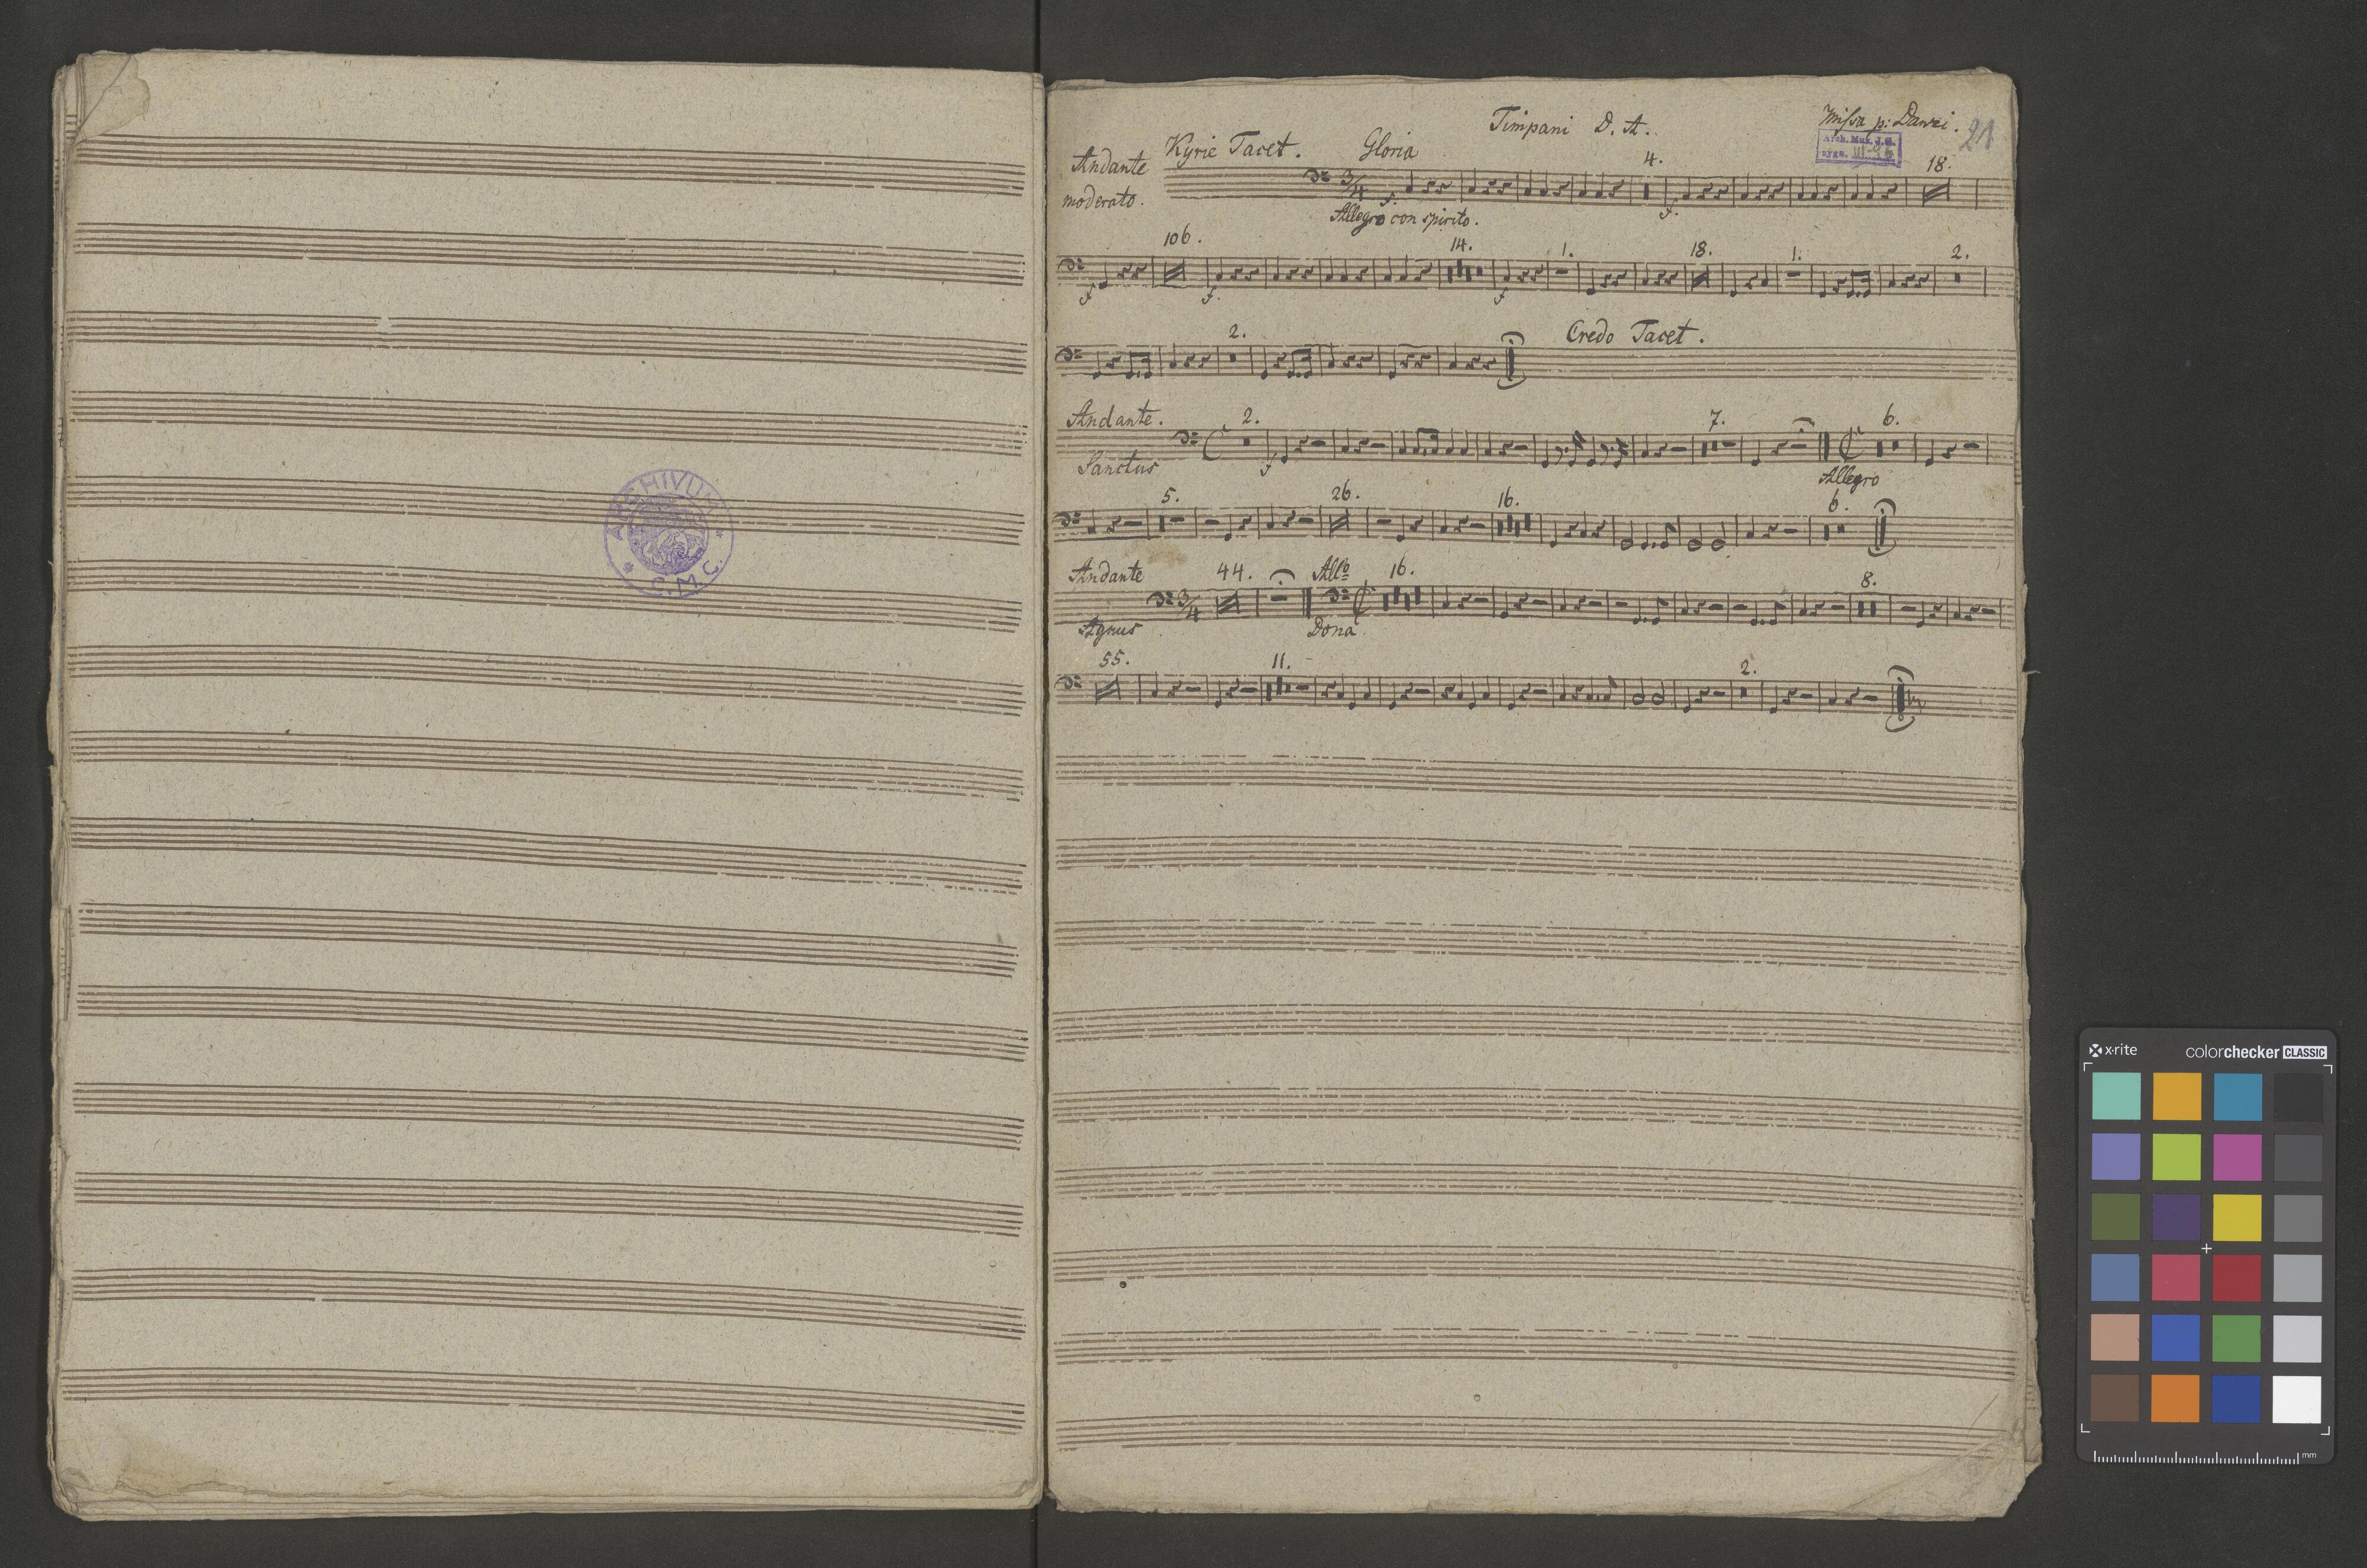 ARCHIVUM
C. M. C.
Timpani D. A.
Missa p: Danzi.
21
Arch. Muz. J. G.
sygn. III-
Andante moderato.
Kyrie Tacet.
Gloria
4.
18.
3/4
f.
f.
Allegro con spirito.
106.
14.
1.
18.
1.
2.
f
f.
f
2.
Credo Tacet.
Andante.
2.
7.
6.
Sanctus
f
Allegro
5.
26.
16.
6.
Andante
44.
Allo
16.
8.
3/4
Agnus
Dona
55.
11.
2.
x-rite
colorchecker CLASSIC
mm